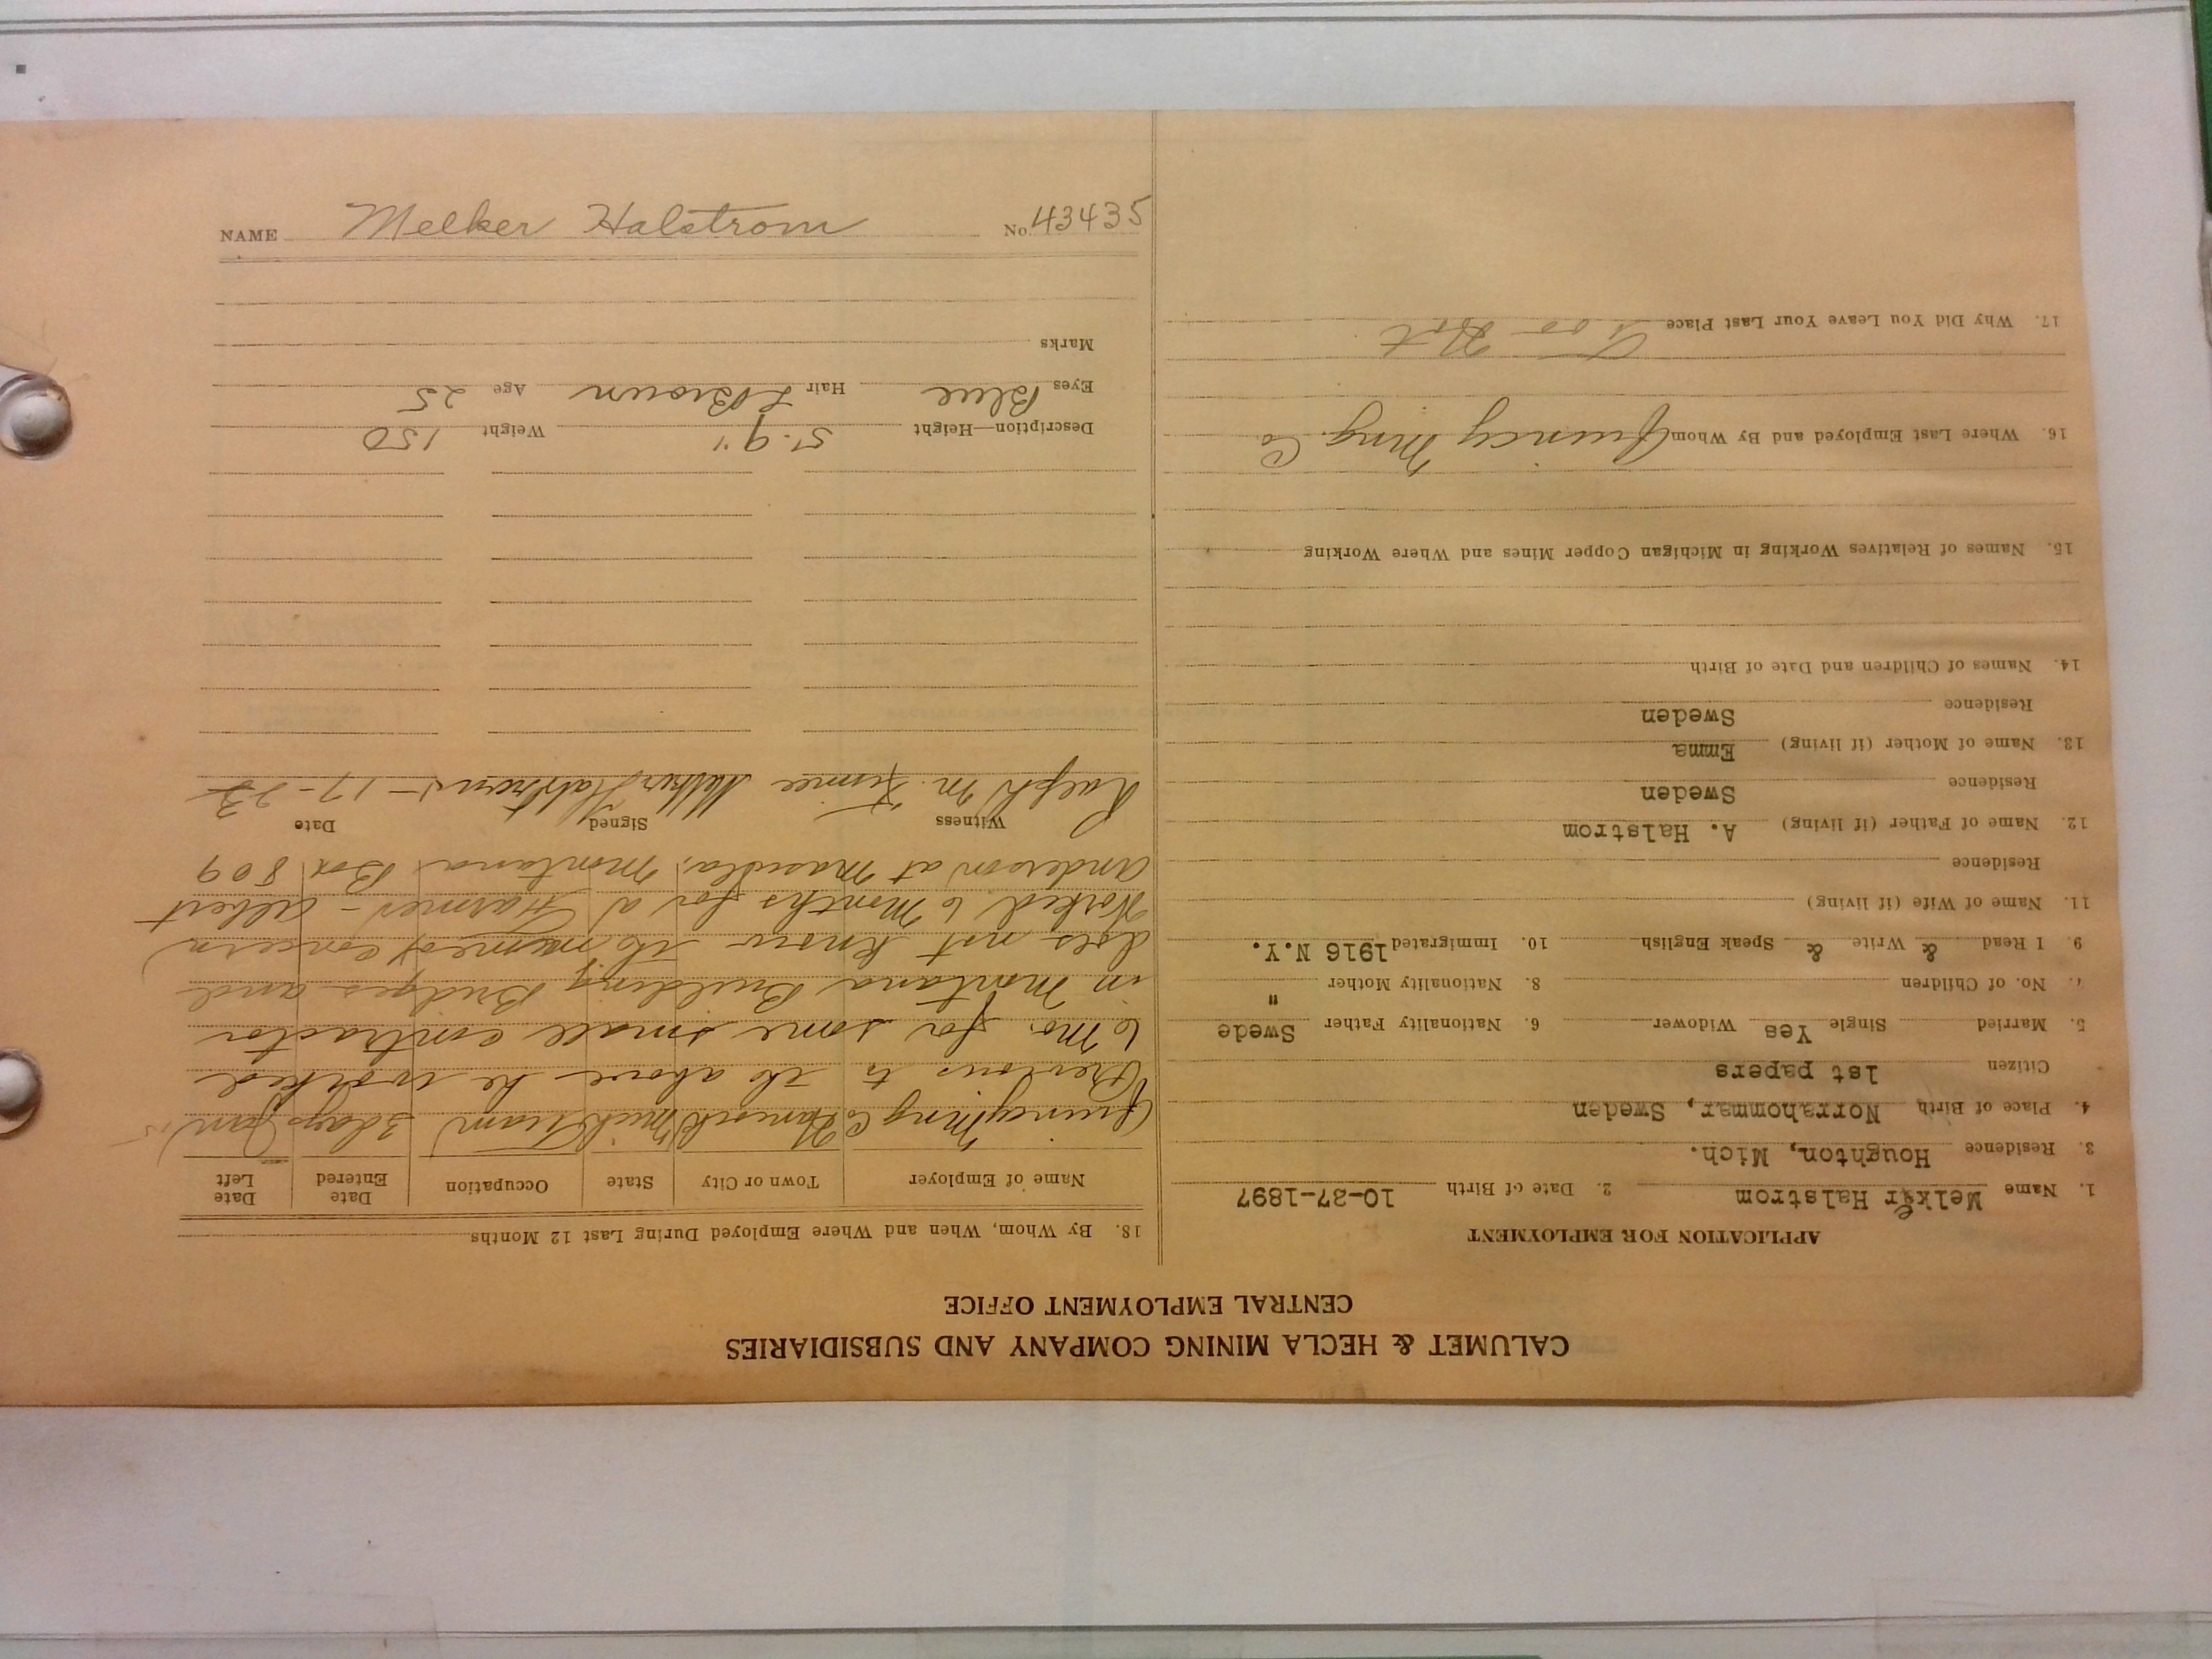 CALUMET & HECLA MINING COMPANY AND SUBSIDIARIES
CENTRAL EMPLOYMENT OFFICE
APPLICATION FOR EMPLOYMENT
1. Name Melker Halstrom 2. Date of Birth 10-27-1897
3. Residence Houghton, Mich.
4. Place of Birth Norrahommar, Sweden
Citizen 1st papers
5. Married Single Yes Widower 6. Nationality Father Swede
7. No. of Children 8. Nationality Mother "
9. I Read & Write & Speak English 10. Immigrated 1916 N.Y.
11. Name of Wife (if living)
Residence
12. Name of Father (if living) A. Halstrom
Residence Sweden
13. Name of Mother (if living) Emma
Residence Sweden
14. Names of Children and Date of Birth
15. Names of Relatives Working in Michigan Copper Mines and Where Working
16. Where Last Employed and By Whom Quincy Mng. Co
17. Why Did You Leave Your Last Place Too Hot
18. By Whom, When and Where Employed During Last 12 Months
Name of Employer Town or City State Occupation Date Entered Date Left
Quincy Mng Co Hancock Mich Tram 3 days Jan 15
Previous to the above he worked
6 Mo. for some small contractor
in Montana Building Bridges and
does not know the name of concern
Worked 6 Months for a Farmer - Albert
Anderson at Montana Box 809
Witness Signed Date
Ralph M. Melker Halstrom 1-17-23
Description—Height 5'.9" Weight 150
Eyes Blue Hair L Brown Age 25
Marks
NAME Melker Halstrom No. 43435